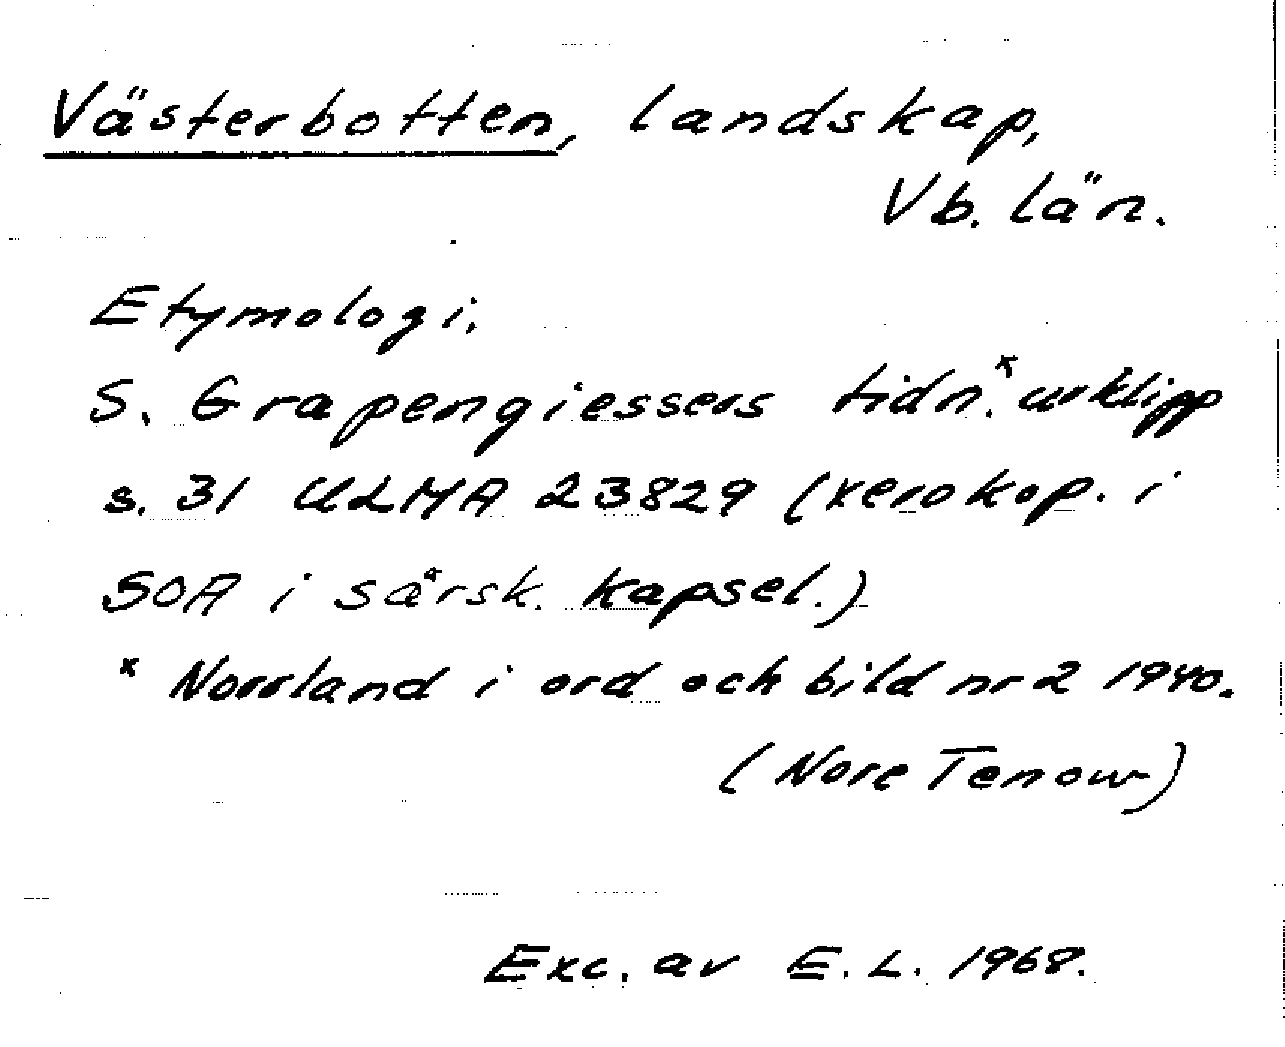 Västerbotten, landskap,
Vb. län.
Etymologi.
S. Grapengiessers tidn.* urklipp
s. 31 ULMA 23829 (xerokop. i
SOA i särsk. kapsel.)
* Norrland i ord och bild nr 2 1940.
(Nore Tenow)
Exc. av E. L. 1968.